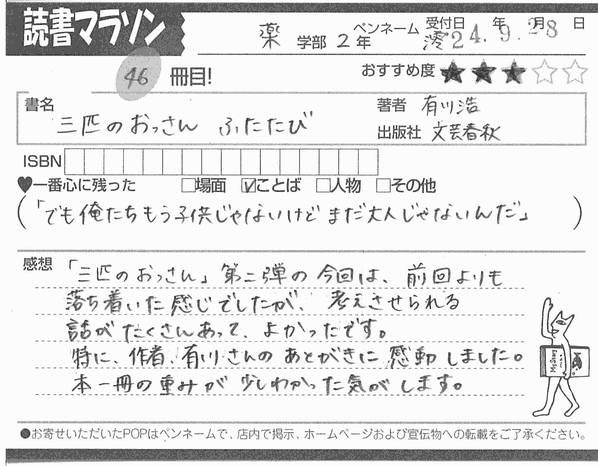 読書マラソン
薬 学部 2年 ペンネーム 澪 受付日 24年 9月 28日
46 冊目!
おすすめ度 ★★★☆☆
書名 三匹のおっさん ふたたび
著者 有川浩
出版社 文芸春秋
ISBN
♥一番心に残った □場面 ☑ことば □人物 □その他
(「でも俺たちもう子供じゃないけどまだ大人じゃないんだ」)
感想 「三匹のおっさん」第二弾の今回は、前回よりも
落ち着いた感じでしたが、考えさせられる
話がたくさんあって、よかったです。
特に、作者、有川さんのあとがきに感動しました。
本一冊の重みが少しわかった気がします。
●お寄せいただいたPOPはペンネームで、店内で掲示、ホームページおよび宣伝物への転載をご了承ください。